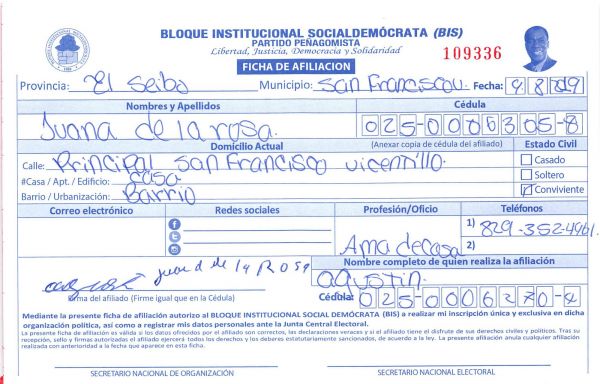 BLOQUE INSTITUCIONAL SOCIALDEMÓCRATA (BIS)
PARTIDO PEÑAGOMISTA
Libertad, Justicia, Democracia y Solidaridad
109336
FICHA DE AFILIACION
Provincia: El Seibo Municipio: San Francisco Fecha:
Nombres y Apellidos Cédula
Juana de la rosa. 025-0006305-8
Domicilio Actual (Anexar copia de cédula del afiliado) Estado Civil
Calle: Principal San Francisco vicentillo. Casado
#Casa / Apt. / Edificio: casa Soltero
Barrio / Urbanización: Barrio Conviviente
Correo electrónico Redes sociales Profesión/Oficio Teléfonos
Ama de casa 1) 829-352-4961.
2)
Nombre completo de quien realiza la afiliación
Juana de la Rosa agustin.
Firma del afiliado (Firme igual que en la Cédula) Cédula: 025-0006270-4
Mediante la presente ficha de afiliación autorizo al BLOQUE INSTITUCIONAL SOCIAL DEMÓCRATA (BIS) a realizar mi inscripción única y exclusiva en dicha
organización política, así como a registrar mis datos personales ante la Junta Central Electoral.
La presente ficha de afiliación es válida si los datos ofrecidos por el afiliado son correctos, las declaraciones veraces y si el titular tiene el disfrute de sus derechos civiles y políticos. Tras su
recepción, sello y firmas autorizadas el afiliado ejercerá todos los derechos y los deberes estatutariamente sancionados, de acuerdo a la ley. La presente afiliación anula cualquier afiliación
realizada con anterioridad a la fecha que aparece en esta ficha.
SECRETARIO NACIONAL DE ORGANIZACIÓN SECRETARIO NACIONAL ELECTORAL